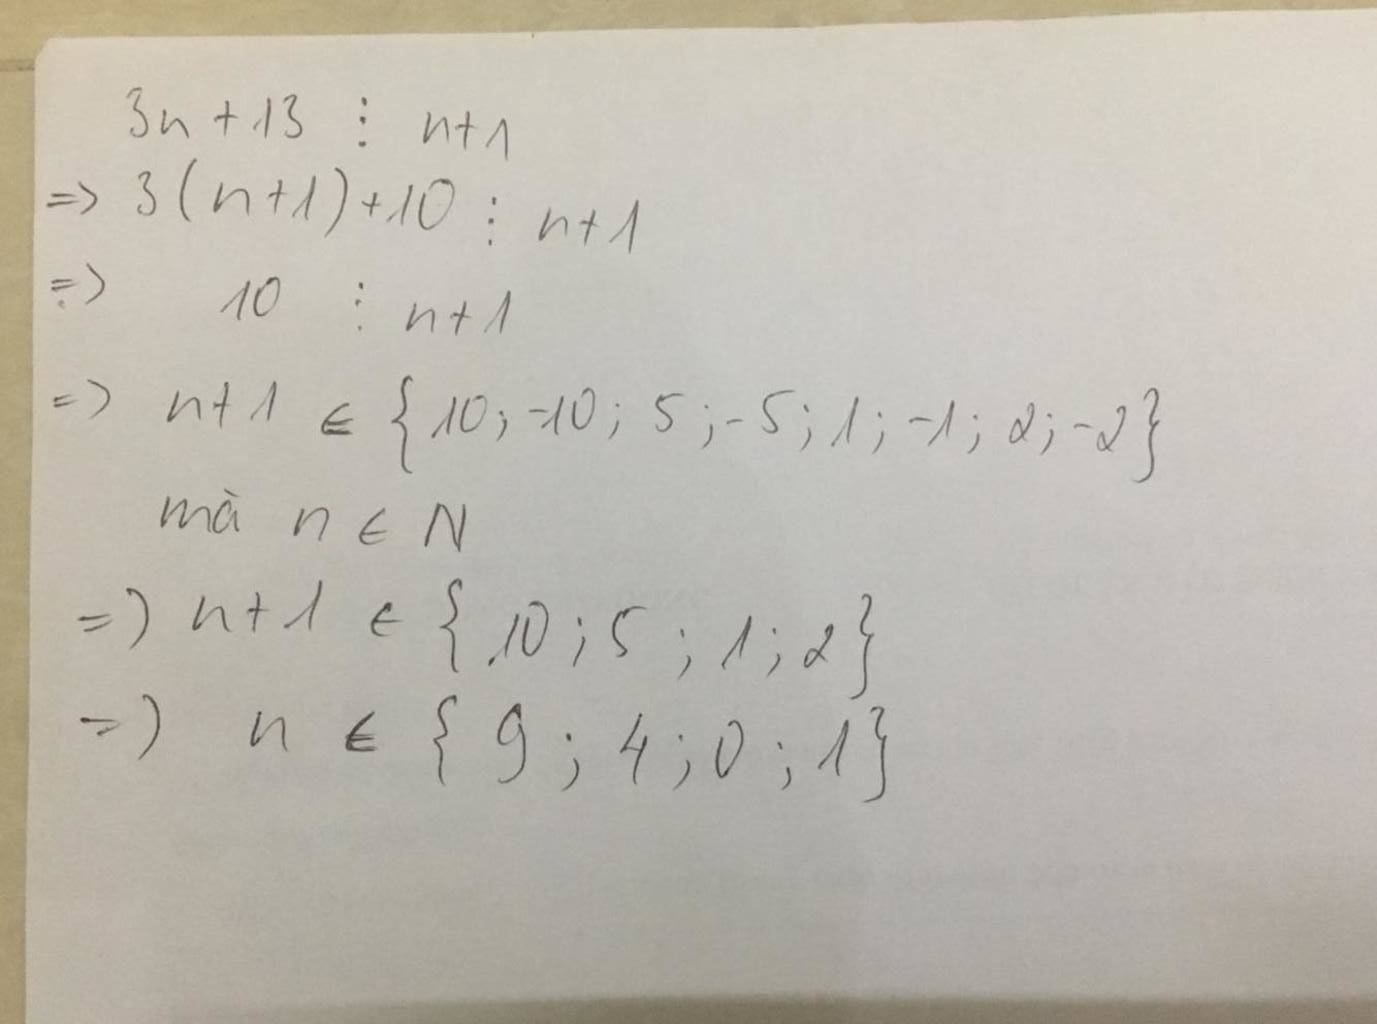 3n + 13 ⋮ n+1
=> 3(n+1)+10 ⋮ n+1
=> 10 ⋮ n+1
=> n+1 ∈ {10; -10; 5; -5; 1; -1; 2; -2}
mà n ∈ N
=> n+1 ∈ {10; 5; 1; 2}
=> n ∈ {9; 4; 0; 1}